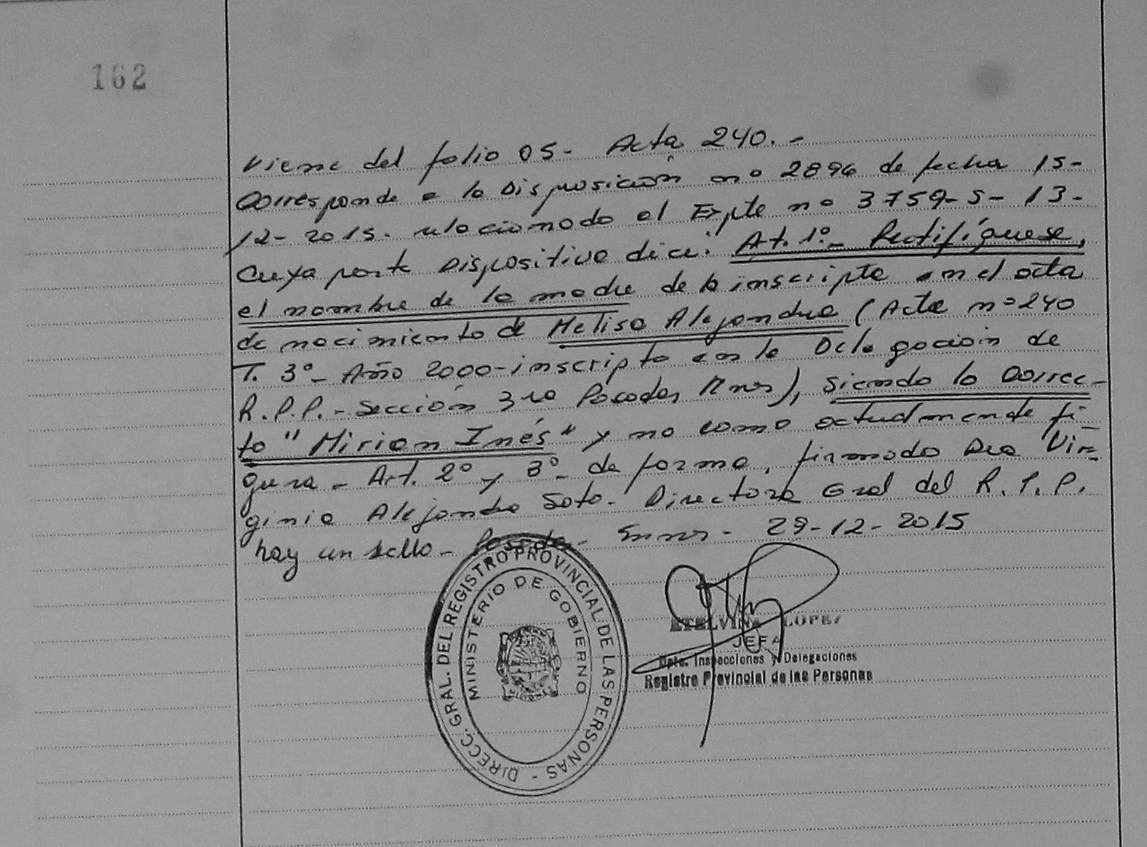 162
Viene del folio 05- Acta 240.-
Corresponde a la Disposición nº 2896 de fecha 15-
12-2015. relacionado al Expte nº 3759-S-13-
Cuya parte Dispositiva dice: Art. 1º- Rectifíquese,
el nombre de la madre de la inscripta en el acta
de nacimiento de Melisa Alejandra (Acta nº 240
T. 3º- Año 2000-inscripta en la Delegación de
R.P.P.- Sección 3ra Posadas Mnes), siendo lo Correc-
to "Mirian Inés" y no como actualmente fi-
gura- Art. 2º y 3º- de forma, firmado Dra Vir-
ginia Alejandra Soto- Directora Gral del R.P.P.
hay un sello- Posadas- 29-12-2015
DIRECC. GRAL. DEL REGISTRO PROVINCIAL DE LAS PERSONAS -
MINISTERIO DE GOBIERNO
ETELVINA LOPEZ
JEFA
Dpto. Inspecciones y Delegaciones
Registro Provincial de las Personas